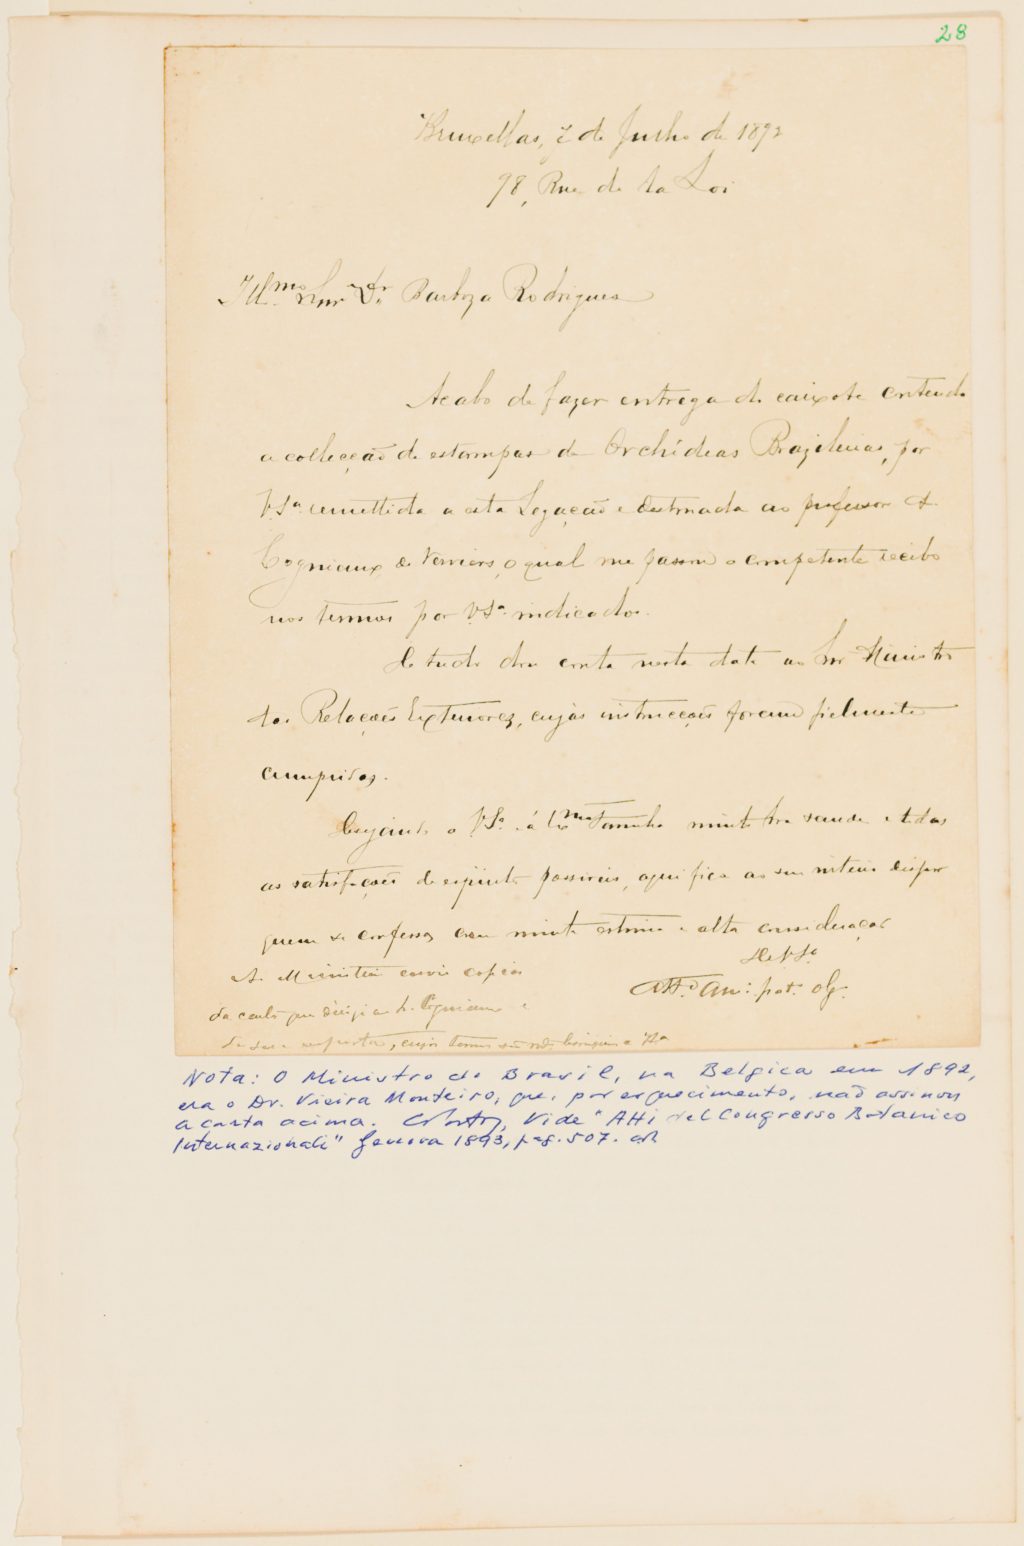 28
Bruxellas, 7 de Julho de 1892
98, Rue de la Loi
Illmo Snr Dr Barboza Rodrigues
Acabo de fazer entrega do caixote contendo
a collecção de estampas de Orchídeas Brazileiras, por
V.Sa remettida a esta Legação e destinada ao professor A.
Cogniaux de Verviers, o qual me passou o competente recibo
nos termos por V.Sa indicados.
De tudo dou conta nesta data ao Snr Ministro
das Relações Exteriores, cujas instrucções foram fielmente
cumpridas.
Desejando a V.Sa e á Exma Familia muita boa saude e todas
as satisfações de espirito possiveis, aqui fica ao seu inteiro dispor
quem se confessa com muita estima e alta consideração
De V.Sa
Atto Am: pat. obr.
Ao Ministerio envio copias
da carta que dirigi a Mr. Cogniaux e
da sua resposta, cujos termos são
Nota: O Ministro do Brasil, na Belgica em 1892,
era o Dr. Vieira Monteiro, que, por esquecimento, não assinou
a carta acima. Vide "Atti del Congresso Botanico
Internazionali" Genova 1893, pag. 507.